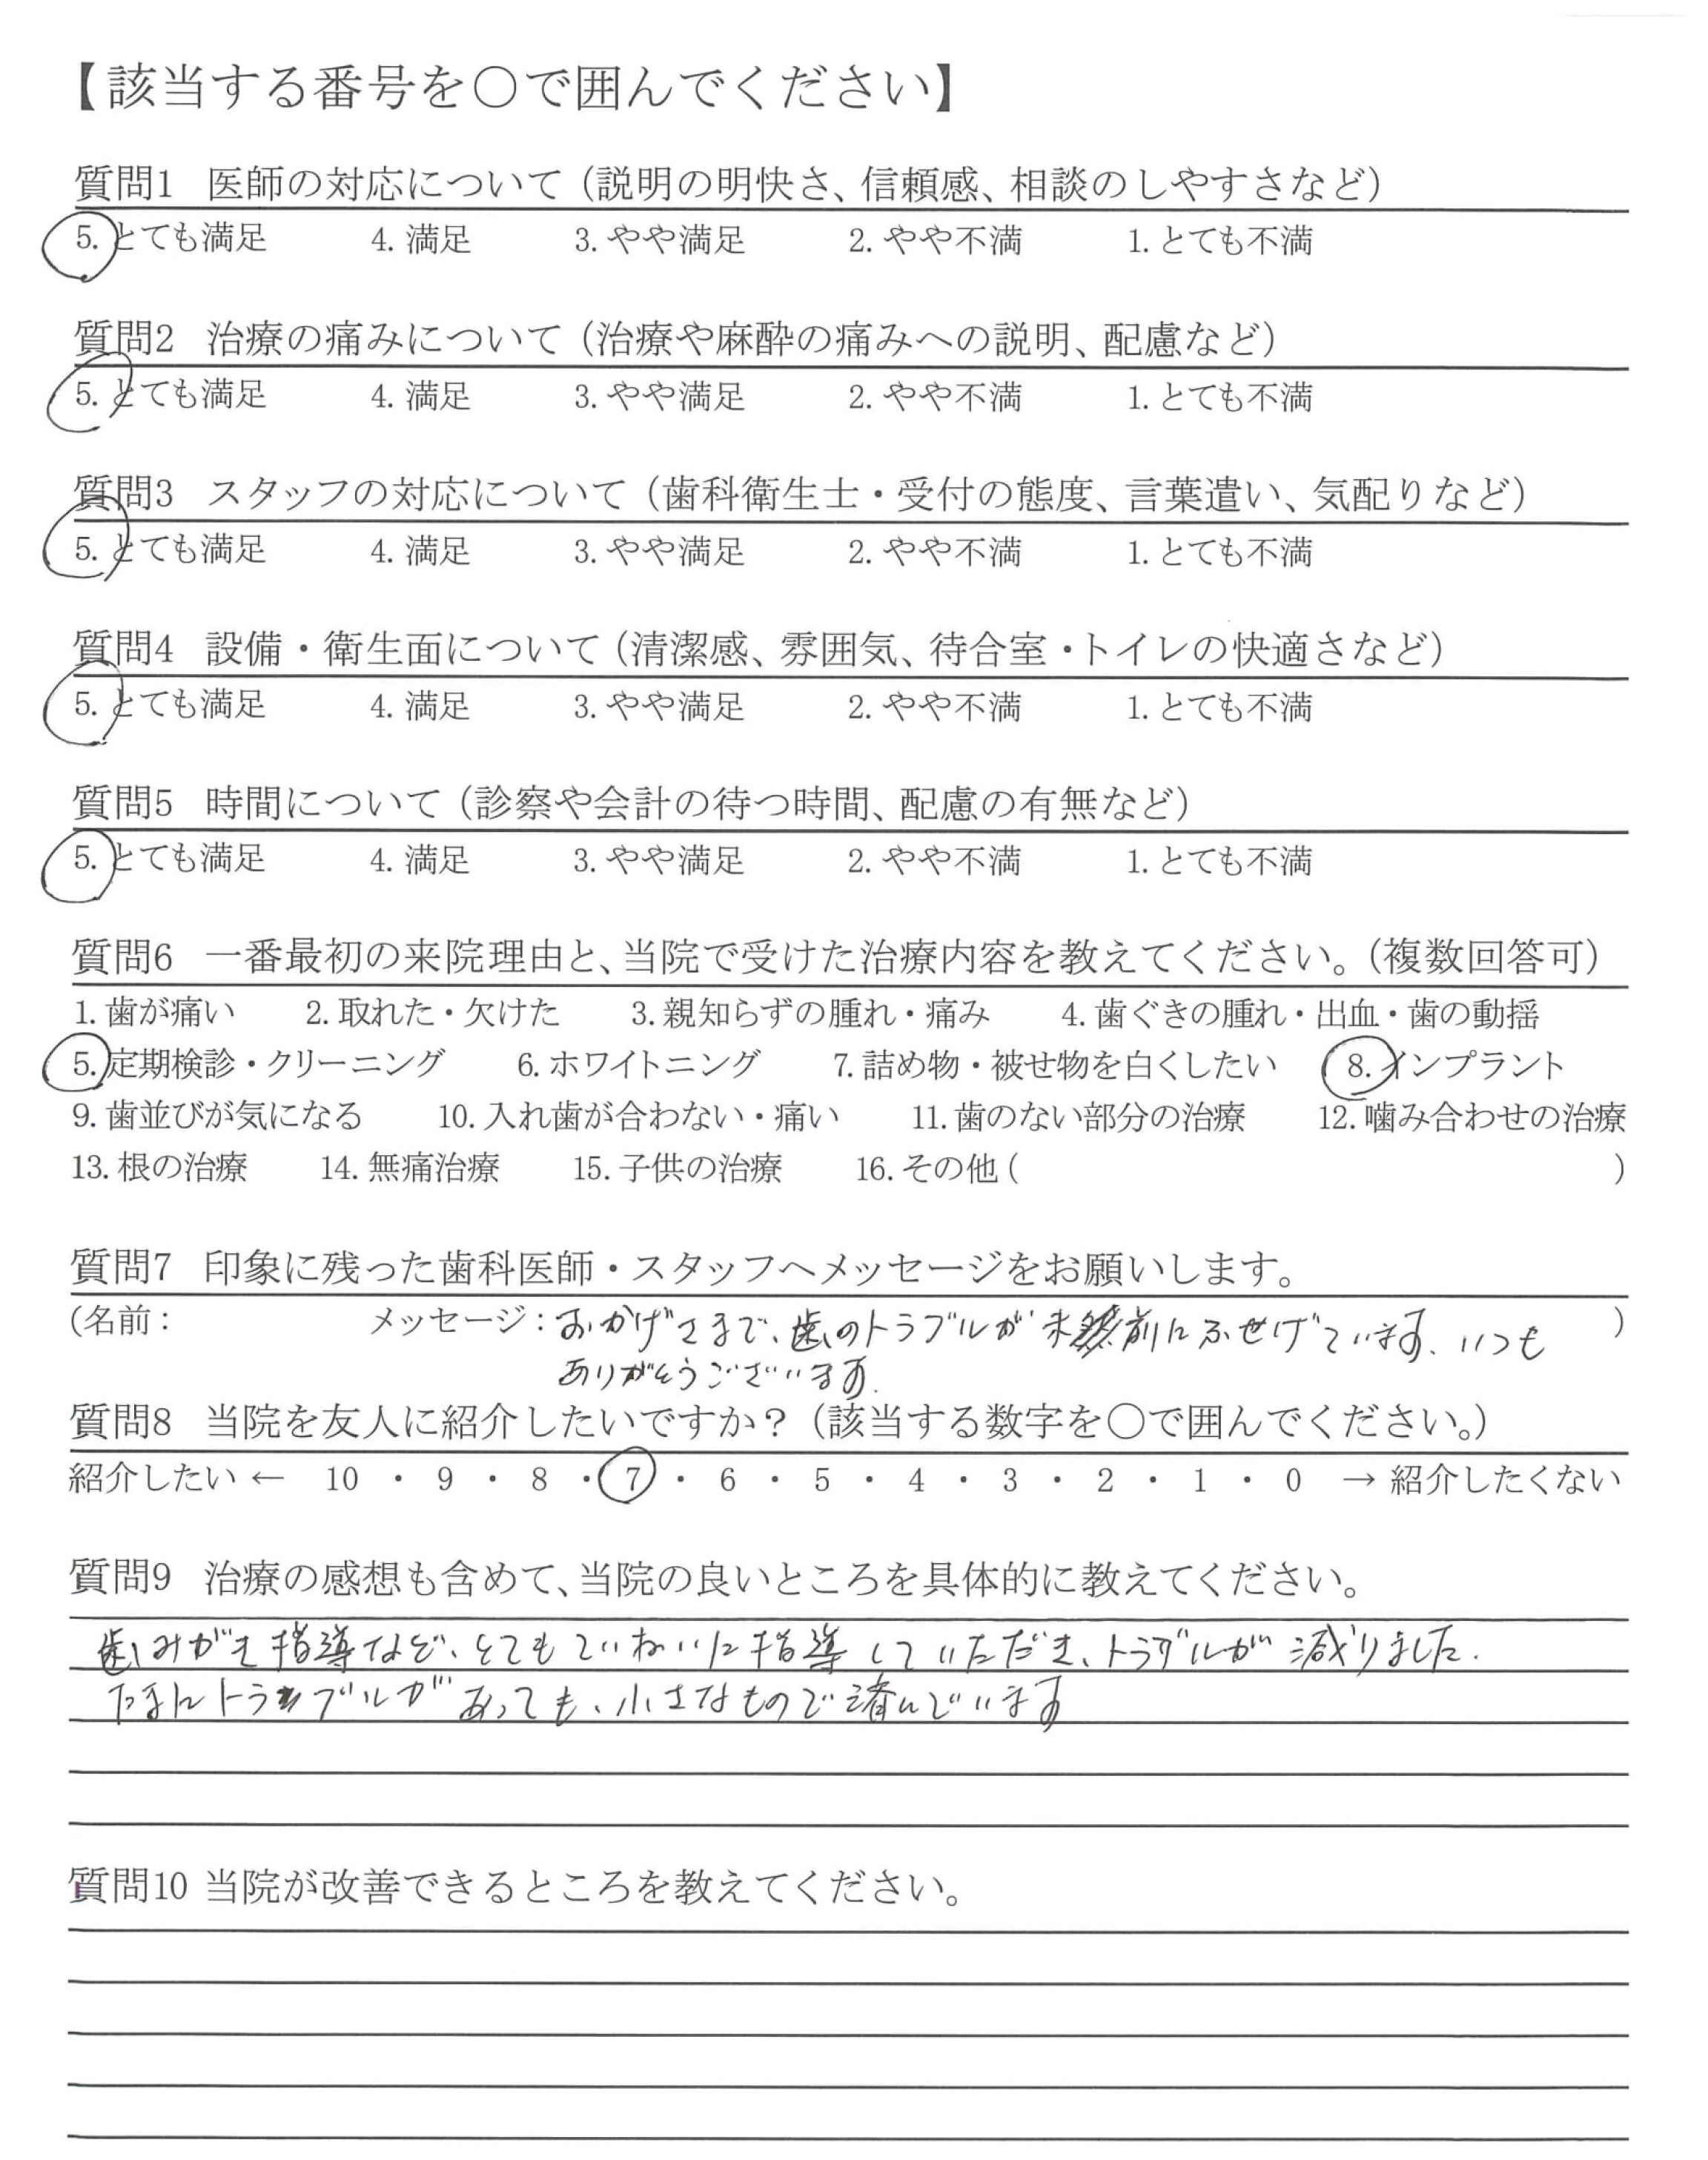 【該当する番号を〇で囲んでください】
質問1 医師の対応について（説明の明快さ、信頼感、相談のしやすさなど）
5. とても満足 4. 満足 3. やや満足 2. やや不満 1. とても不満
質問2 治療の痛みについて（治療や麻酔の痛みへの説明、配慮など）
5. とても満足 4. 満足 3. やや満足 2. やや不満 1. とても不満
質問3 スタッフの対応について（歯科衛生士・受付の態度、言葉遣い、気配りなど）
5. とても満足 4. 満足 3. やや満足 2. やや不満 1. とても不満
質問4 設備・衛生面について（清潔感、雰囲気、待合室・トイレの快適さなど）
5. とても満足 4. 満足 3. やや満足 2. やや不満 1. とても不満
質問5 時間について（診察や会計の待つ時間、配慮の有無など）
5. とても満足 4. 満足 3. やや満足 2. やや不満 1. とても不満
質問6 一番最初の来院理由と、当院で受けた治療内容を教えてください。（複数回答可）
1. 歯が痛い 2. 取れた・欠けた 3. 親知らずの腫れ・痛み 4. 歯ぐきの腫れ・出血・歯の動揺
5. 定期検診・クリーニング 6. ホワイトニング 7. 詰め物・被せ物を白くしたい 8. インプラント
9. 歯並びが気になる 10. 入れ歯が合わない・痛い 11. 歯のない部分の治療 12. 噛み合わせの治療
13. 根の治療 14. 無痛治療 15. 子供の治療 16. その他（ ）
質問7 印象に残った歯科医師・スタッフへメッセージをお願いします。
（名前： メッセージ：おかげさまで、歯のトラブルが未前にふせげています。いつも ）
ありがとうございます。
質問8 当院を友人に紹介したいですか？（該当する数字を〇で囲んでください。）
紹介したい ← 10 ・ 9 ・ 8 ・ 7 ・ 6 ・ 5 ・ 4 ・ 3 ・ 2 ・ 1 ・ 0 → 紹介したくない
質問9 治療の感想も含めて、当院の良いところを具体的に教えてください。
歯みがき指導など、とてもていねいに指導していただき、トラブルが減りました。
たまにトラブルがあっても、小さなもので済んでいます
質問10 当院が改善できるところを教えてください。